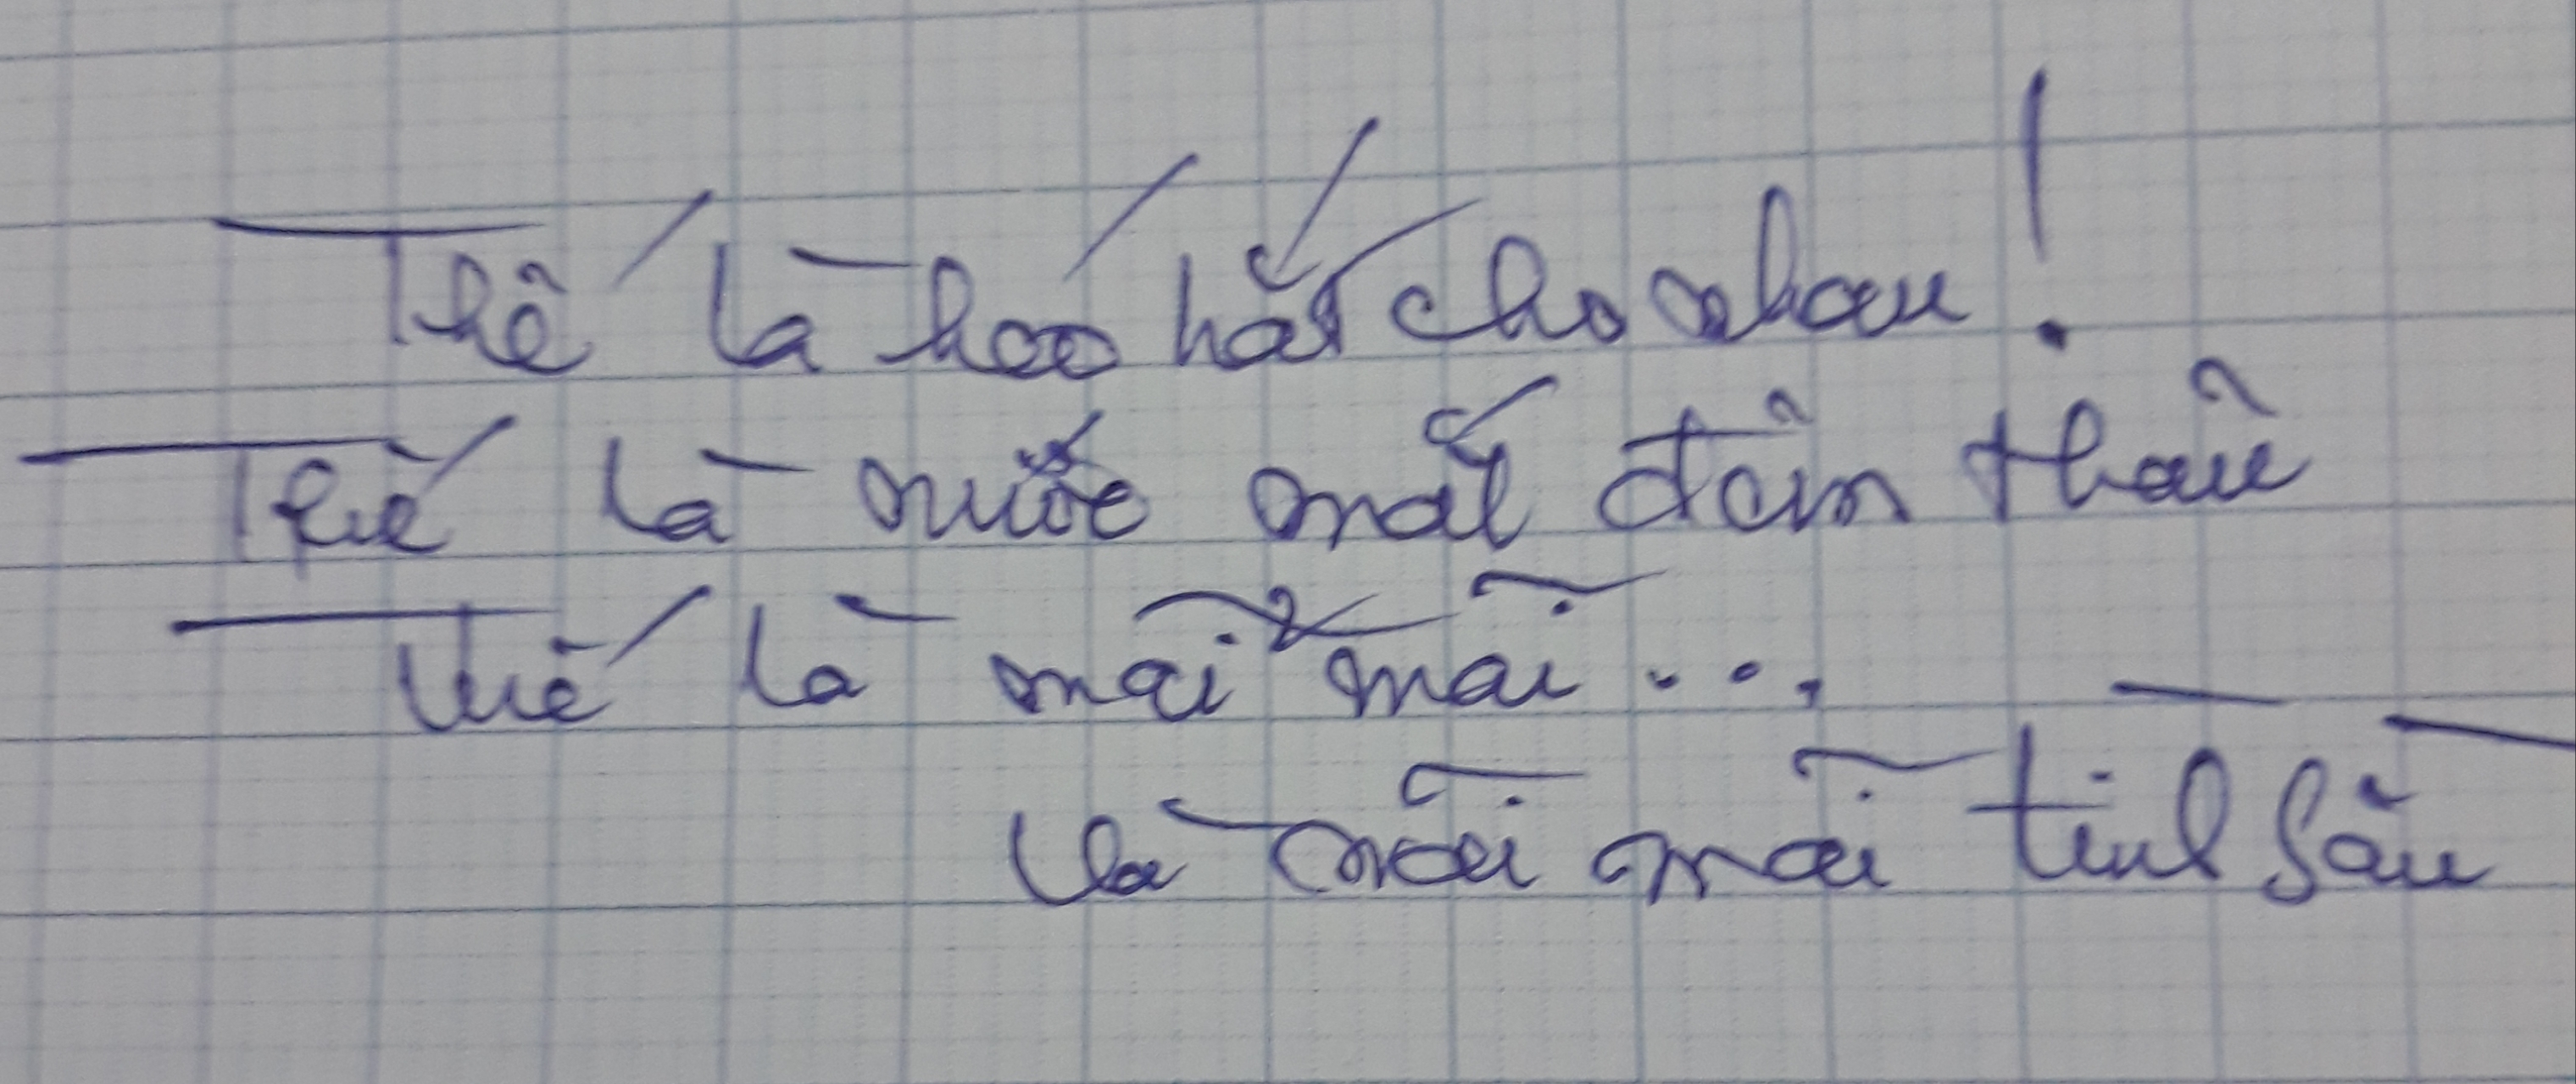 Thế là hoá hắt cho nhau!
Thế là nước mắt đẫm thảu
Thế là mãi mãi...
Là mãi mãi tình sầu